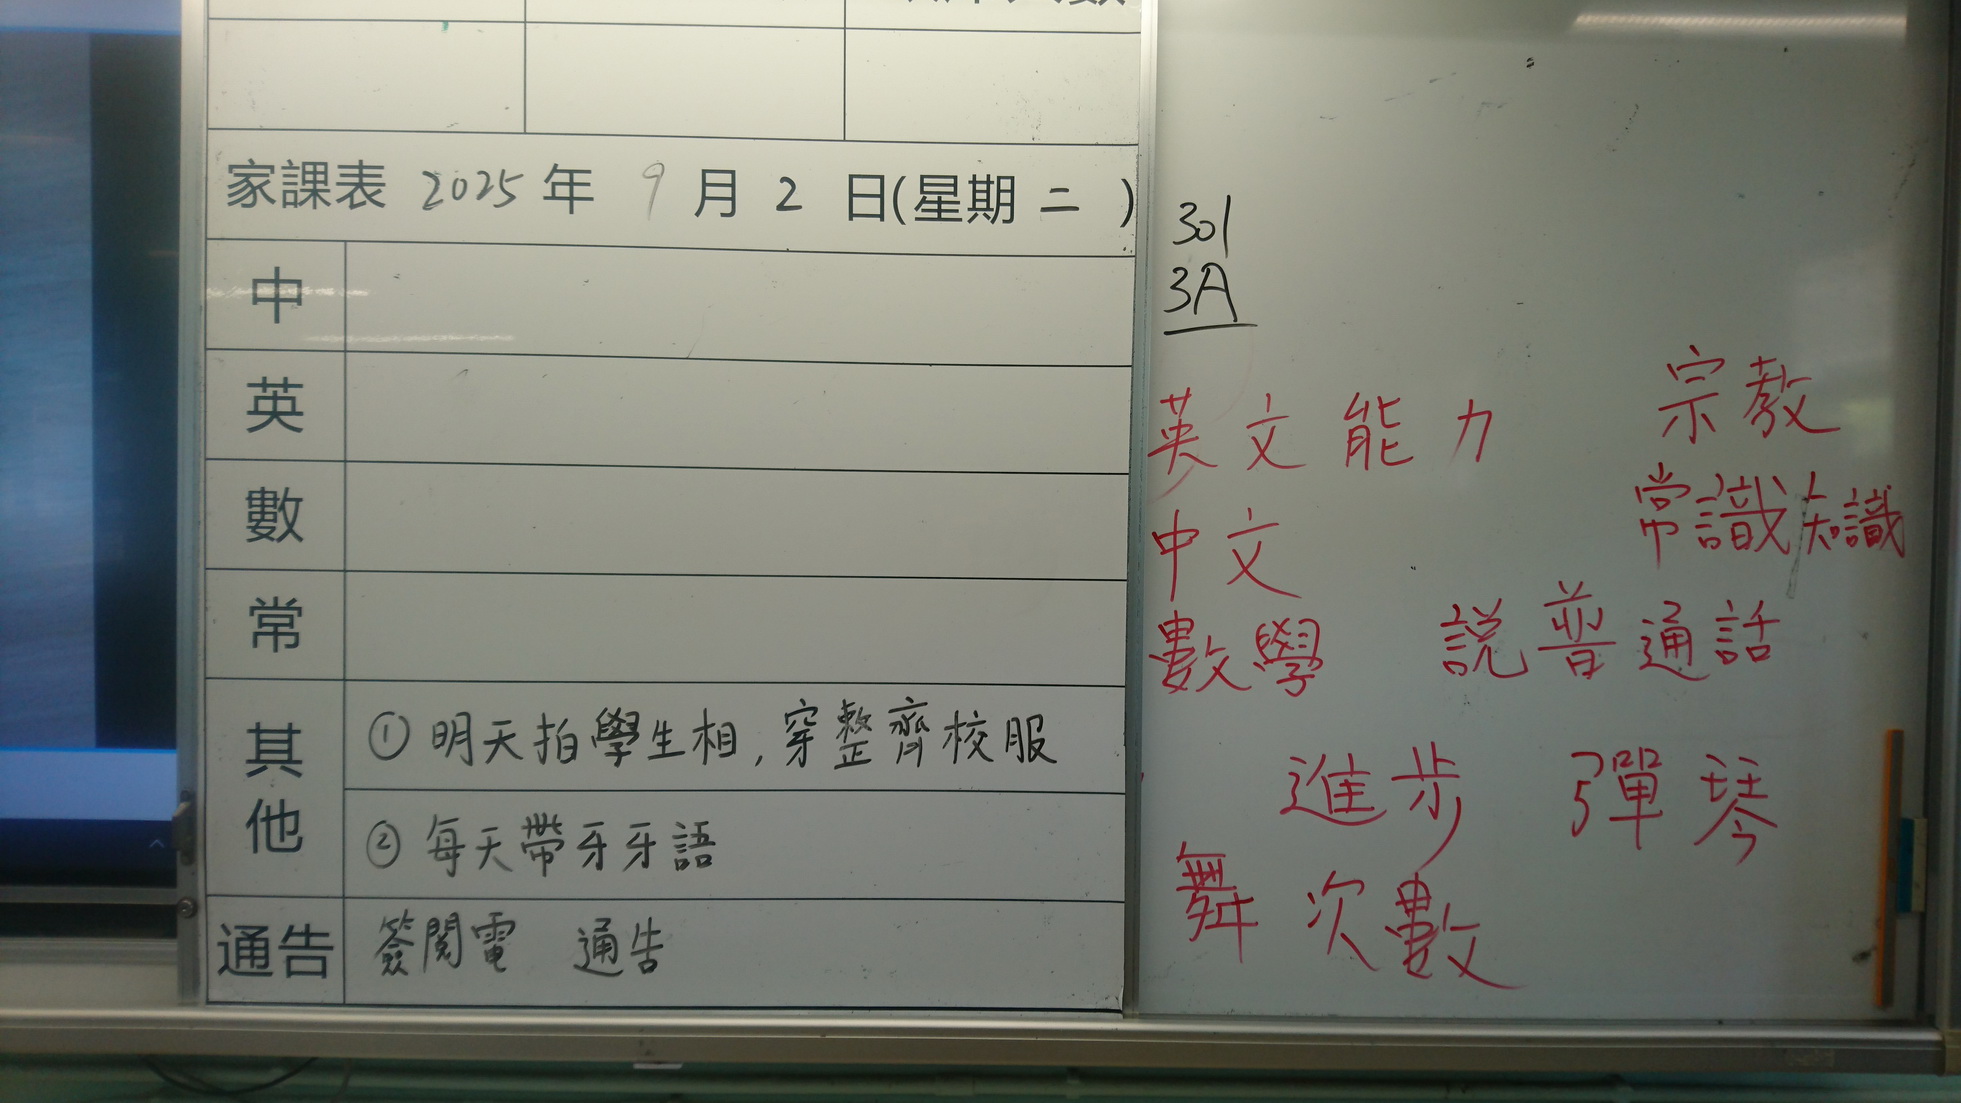 家課表 2025 年 9 月 2 日(星期 二 )
中
英
數
常
其他
① 明天拍學生相, 穿整齊校服
② 每天帶牙牙語
通告
簽閱電 通告
301
3A
英文能力
宗教
中文
常識知識
數學
説普通話
進步
彈琴
舞
次數